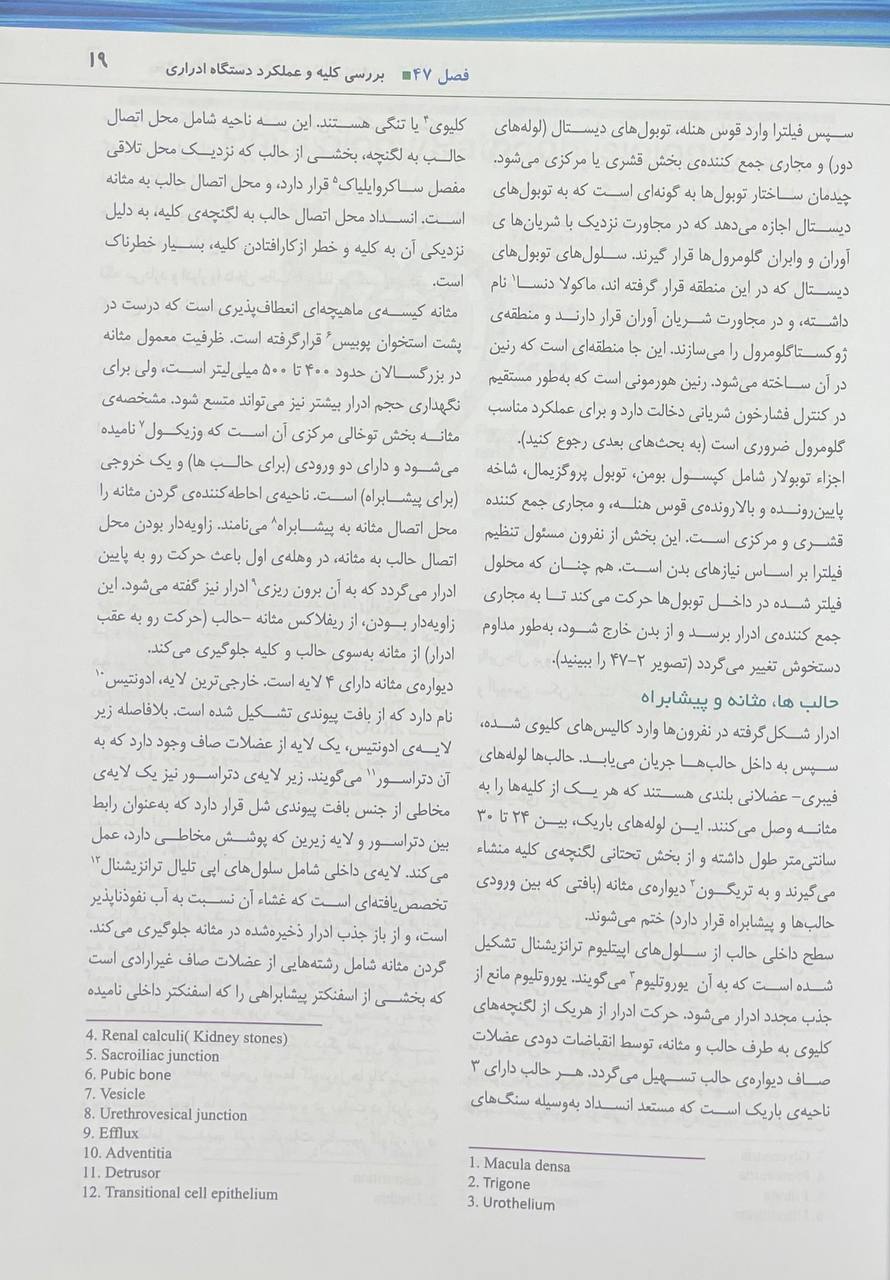 فصل ۴۷ ■ بررسی کلیه و عملکرد دستگاه ادراری
۱۹
سپس فیلترا وارد قوس هنله، توبول‌های دیستال (لوله‌های
دور) و مجاری جمع کننده‌ی بخش قشری یا مرکزی می‌شود.
چیدمان ساختار توبول‌ها به گونه‌ای است که به توبول‌های
دیستال اجازه می‌دهد که در مجاورت نزدیک با شریان‌ها ی
آوران و وابران گلومرول‌ها قرار گیرند. سلول‌های توبول‌های
دیستال که در این منطقه قرار گرفته اند، ماکولا دنسا۱ نام
داشته، و در مجاورت شریان آوران قرار دارند و منطقه‌ی
ژوکستاگلومرول را می‌سازند. این جا منطقه‌ای است که رنین
در آن ساخته می‌شود. رنین هورمونی است که به‌طور مستقیم
در کنترل فشارخون شریانی دخالت دارد و برای عملکرد مناسب
گلومرول ضروری است (به بحث‌های بعدی رجوع کنید).
اجزاء توبولار شامل کپسول بومن، توبول پروگزیمال، شاخه
پایین‌رونده و بالارونده‌ی قوس هنله، و مجاری جمع کننده
قشری و مرکزی است. این بخش از نفرون مسئول تنظیم
فیلترا بر اساس نیازهای بدن است. هم چنان که محلول
فیلتر شده در داخل توبول‌ها حرکت می‌کند تا به مجاری
جمع کننده‌ی ادرار برسد و از بدن خارج شود، به‌طور مداوم
دستخوش تغییر می‌گردد (تصویر ۲-۴۷ را ببینید).
حالب ها، مثانه و پیشابراه
ادرار شکل‌گرفته در نفرون‌ها وارد کالیس‌های کلیوی شده،
سپس به داخل حالب‌ها جریان می‌یابد. حالب‌ها لوله‌های
فیبری- عضلانی بلندی هستند که هر یک از کلیه‌ها را به
مثانه وصل می‌کنند. این لوله‌های باریک، بین ۲۴ تا ۳۰
سانتی‌متر طول داشته و از بخش تحتانی لگنچه‌ی کلیه منشاء
می‌گیرند و به تریگون۲ دیواره‌ی مثانه (بافتی که بین ورودی
حالب‌ها و پیشابراه قرار دارد) ختم می‌شوند.
سطح داخلی حالب از سلول‌های اپیتلیوم ترانزیشنال تشکیل
شده است که به آن یوروتلیوم۳ می‌گویند. یوروتلیوم مانع از
جذب مجدد ادرار می‌شود. حرکت ادرار از هریک از لگنچه‌های
کلیوی به طرف حالب و مثانه، توسط انقباضات دودی عضلات
صاف دیواره‌ی حالب تسهیل می‌گردد. هر حالب دارای ۳
ناحیه‌ی باریک است که مستعد انسداد به‌وسیله سنگ‌های
1. Macula densa
2. Trigone
3. Urothelium
کلیوی۴ یا تنگی هستند. این سه ناحیه شامل محل اتصال
حالب به لگنچه، بخشی از حالب که نزدیک محل تلاقی
مفصل ساکروایلیاک۵ قرار دارد، و محل اتصال حالب به مثانه
است. انسداد محل اتصال حالب به لگنچه‌ی کلیه، به دلیل
نزدیکی آن به کلیه و خطر ازکارافتادن کلیه، بسیار خطرناک
است.
مثانه کیسه‌ی ماهیچه‌ای انعطاف‌پذیری است که درست در
پشت استخوان پوبیس۶ قرارگرفته است. ظرفیت معمول مثانه
در بزرگسالان حدود ۴۰۰ تا ۵۰۰ میلی‌لیتر است، ولی برای
نگهداری حجم ادرار بیشتر نیز می‌تواند متسع شود. مشخصه‌ی
مثانه بخش توخالی مرکزی آن است که وزیکول۷ نامیده
می‌شود و دارای دو ورودی (برای حالب ها) و یک خروجی
(برای پیشابراه) است. ناحیه‌ی احاطه‌کننده‌ی گردن مثانه را
محل اتصال مثانه به پیشابراه۸ می‌نامند. زاویه‌دار بودن محل
اتصال حالب به مثانه، در وهله‌ی اول باعث حرکت رو به پایین
ادرار می‌گردد که به آن برون ریزی۹ ادرار نیز گفته می‌شود. این
زاویه‌دار بودن، از ریفلاکس مثانه -حالب (حرکت رو به عقب
ادرار) از مثانه به‌سوی حالب و کلیه جلوگیری می‌کند.
دیواره‌ی مثانه دارای ۴ لایه است. خارجی‌ترین لایه، ادونتیس۱۰
نام دارد که از بافت پیوندی تشکیل شده است. بلافاصله زیر
لایه‌ی ادونتیس، یک لایه از عضلات صاف وجود دارد که به
آن دتراسور۱۱ می‌گویند. زیر لایه‌ی دتراسور نیز یک لایه‌ی
مخاطی از جنس بافت پیوندی شل قرار دارد که به‌عنوان رابط
بین دتراسور و لایه زیرین که پوشش مخاطی دارد، عمل
می‌کند. لایه‌ی داخلی شامل سلول‌های اپی تلیال ترانزیشنال۱۲
تخصص‌یافته‌ای است که غشاء آن نسبت به آب نفوذناپذیر
است، و از باز جذب ادرار ذخیره‌شده در مثانه جلوگیری می‌کند.
گردن مثانه شامل رشته‌هایی از عضلات صاف غیرارادی است
که بخشی از اسفنکتر پیشابراهی را که اسفنکتر داخلی نامیده
4. Renal calculi( Kidney stones)
5. Sacroiliac junction
6. Pubic bone
7. Vesicle
8. Urethrovesical junction
9. Efflux
10. Adventitia
11. Detrusor
12. Transitional cell epithelium